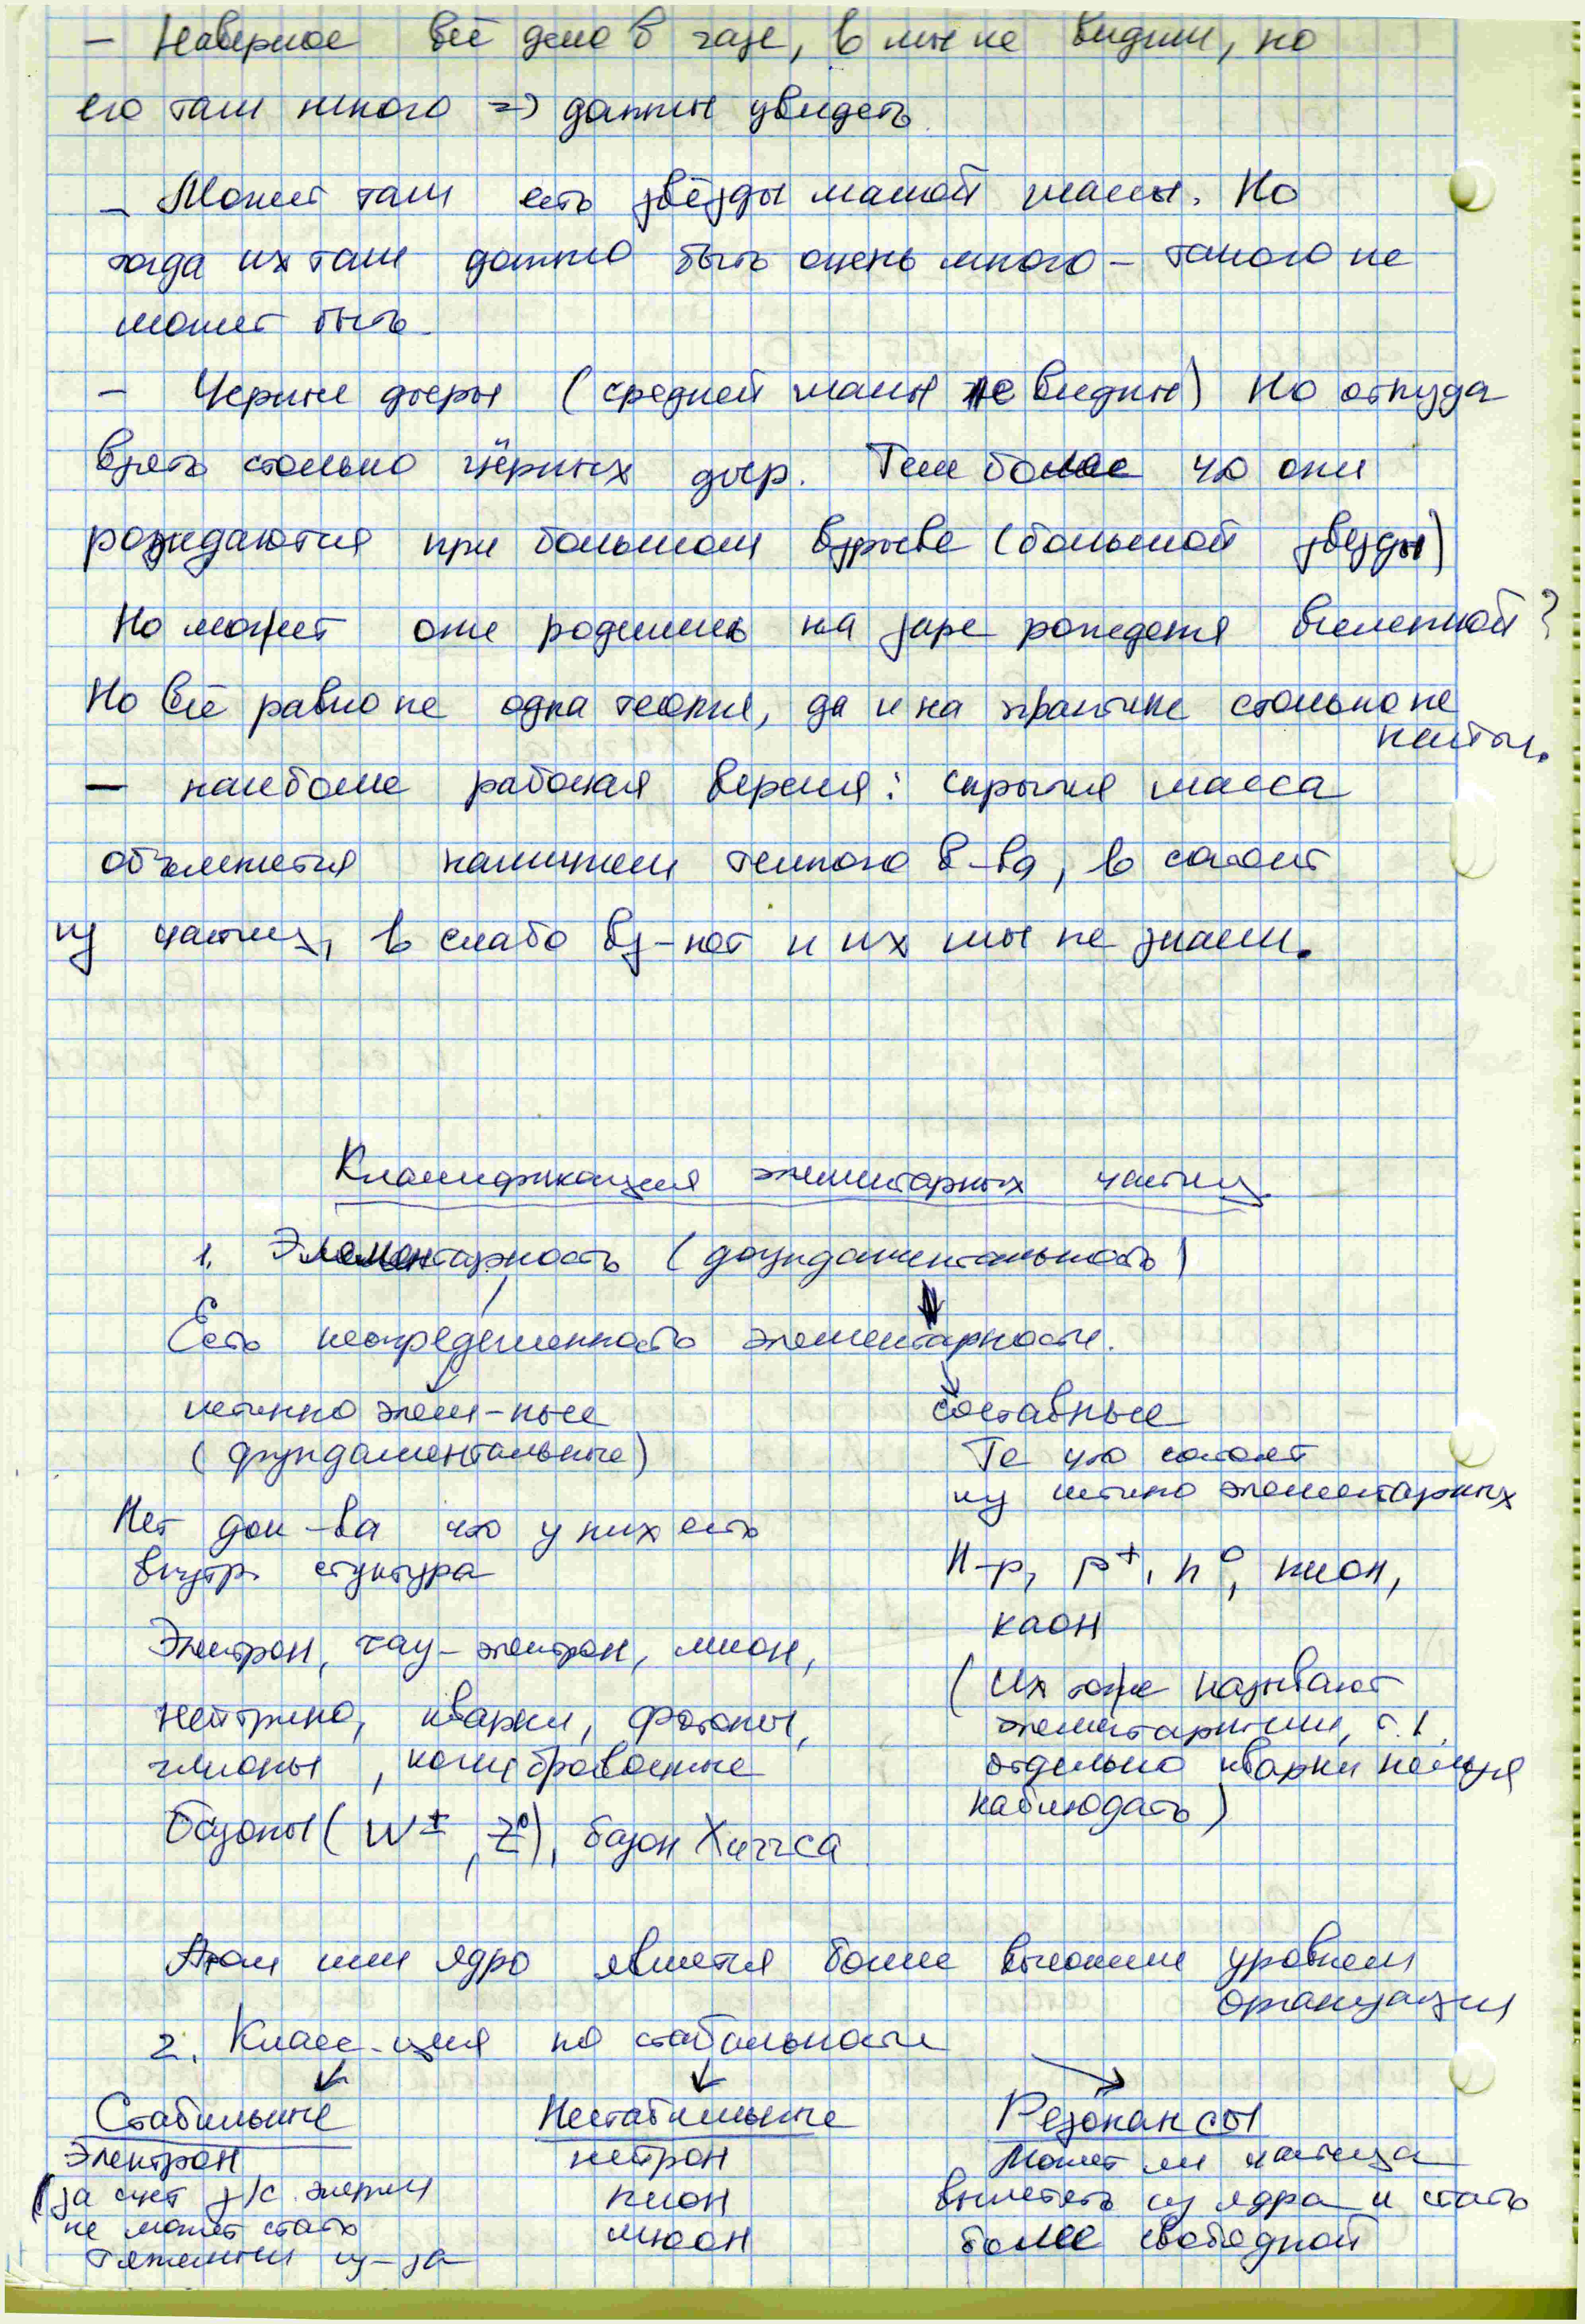 – Наверное всё дело в газе, в мы не видим, но
его там много => должны увидеть
– Может там есть звёзды малой массы. Но
тогда их там должно быть очень много – такого не
может быть.
– Черные дыры (средней массы не видны) Но откуда
взять столько чёрных дыр. Тем более что они
рождаются при большом взрыве (большой звезды)
Но может они родились на заре рождения вселенной?
Но всё равно не одна теория, да и на практике столько не
найти.
– наиболее рабочая версия: скрытая масса
объясняется наличием темного в-ва, в состоит
из частиц, в слабо вз-ют и их мы не знаем.
Классификация элементарных частиц
1. Элементарность (фундаментальность)
Есть неопределенность элементарности.
истинно элем-ные
(фундаментальные)
Нет док-ва что у них есть
внутр. стуктура
Электрон, тау-электрон, мюон,
нейтрино, кварки, фотоны,
глюоны, калибровочные
бозоны (W±, Z⁰), бозон Хиггса
составные
Те что состоят
из истино элементарных
Н-р, p⁺, n⁰, пион,
каон
(Их тоже называют
элементарными, т.к.
отдельно кварки нельзя
наблюдать)
Атом или ядро является более высоким уровнем
организации
2. Класс-ция по стабильности
Стабильные
Электрон
(за счет з/с энергии
не может стать
из-за
Нестабильные
нетрон
пион
мюон
Резонансы
Может ли частица
вылететь из ядра и стать
более свободной